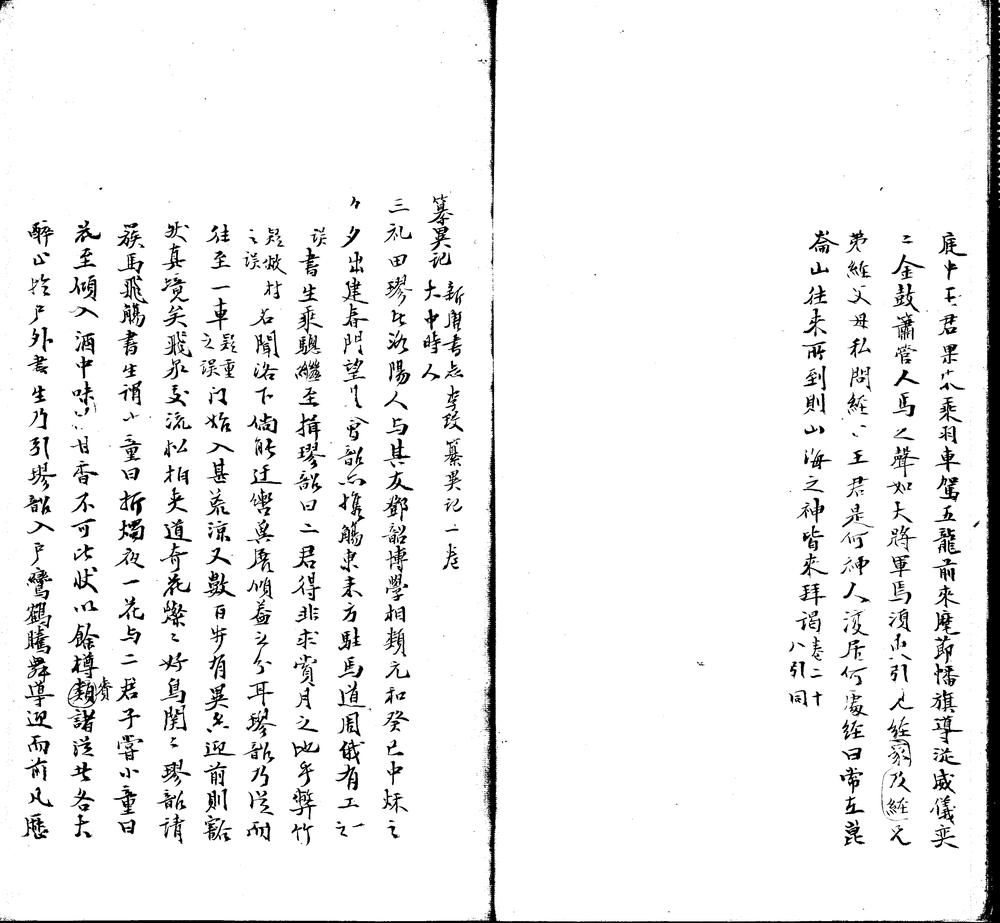 庭中王君果來乘羽車駕五龍前來麾節幡旗導從威儀奕
〻金鼓簫管人馬之聲如大將軍焉須臾引見經家及經兄
弟經父母私問經〻王君是何神人復居何處經曰常在崑
崙山往來所到則山海之神皆來拜謁卷二十
八引同
纂異記 新唐書志李玫纂異記一卷
大中時人
三礼田璆者洛陽人与其友鄧韶博學相類元和癸巳中秋之
夕出建春門望月會韶亦攜觴東来方駐馬道周俄有二
書生乘驄繼至揖璆韶曰二君得非求賞月之地乎弊竹
名聞洛下倘能迂轡冀展傾蓋之分耳璆韶乃從而
往至一車之疑重誤門始入甚荒涼又數百步有異香迎前則豁
然真境矣飛泉交流松柏夾道奇花燦〻好鳥関〻璆韶請
疾馬飛觴書生謂小童曰折燭夜一花与二君子嘗小童曰
花至傾入酒中味〻甘香不可比狀以餘樽類賚諸從者各大
醉止於户外書生乃引璆韶入户鸞鶴騰舞導迎而前凡歷